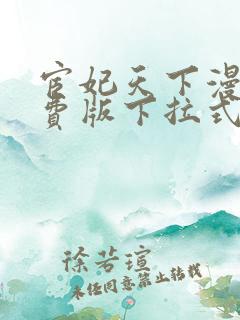 宦妃天下漫
费版下拉式
徐若瑄
未经同意禁止转载